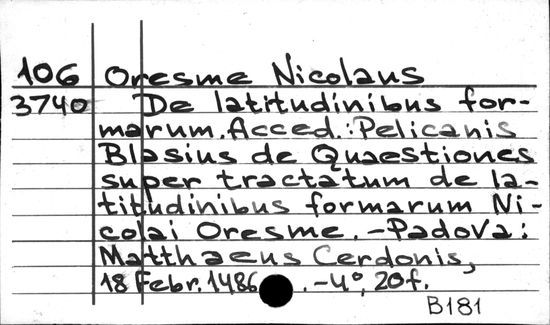 106 Oresme Nicolaus
3740 De latitudinibus for-
marum. Acced.: Pelicanis
Blasius de Quaestiones
super tractatum de la-
titudinibus formarum Ni-
colai Oresme. - Padova:
Matthaeus Cerdonis,
18 Febr. 1486 . - 4°, 20f.
B181